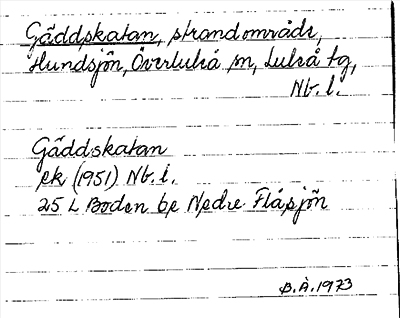 Gäddskatan, strandområde,
Hundsjön, Överluleå sn, Luleå tg,
Nb. l.
Gäddskatan
ek (1951) Nb. l.
25 L Boden be Nedre Flåsjön
B.Å. 1973